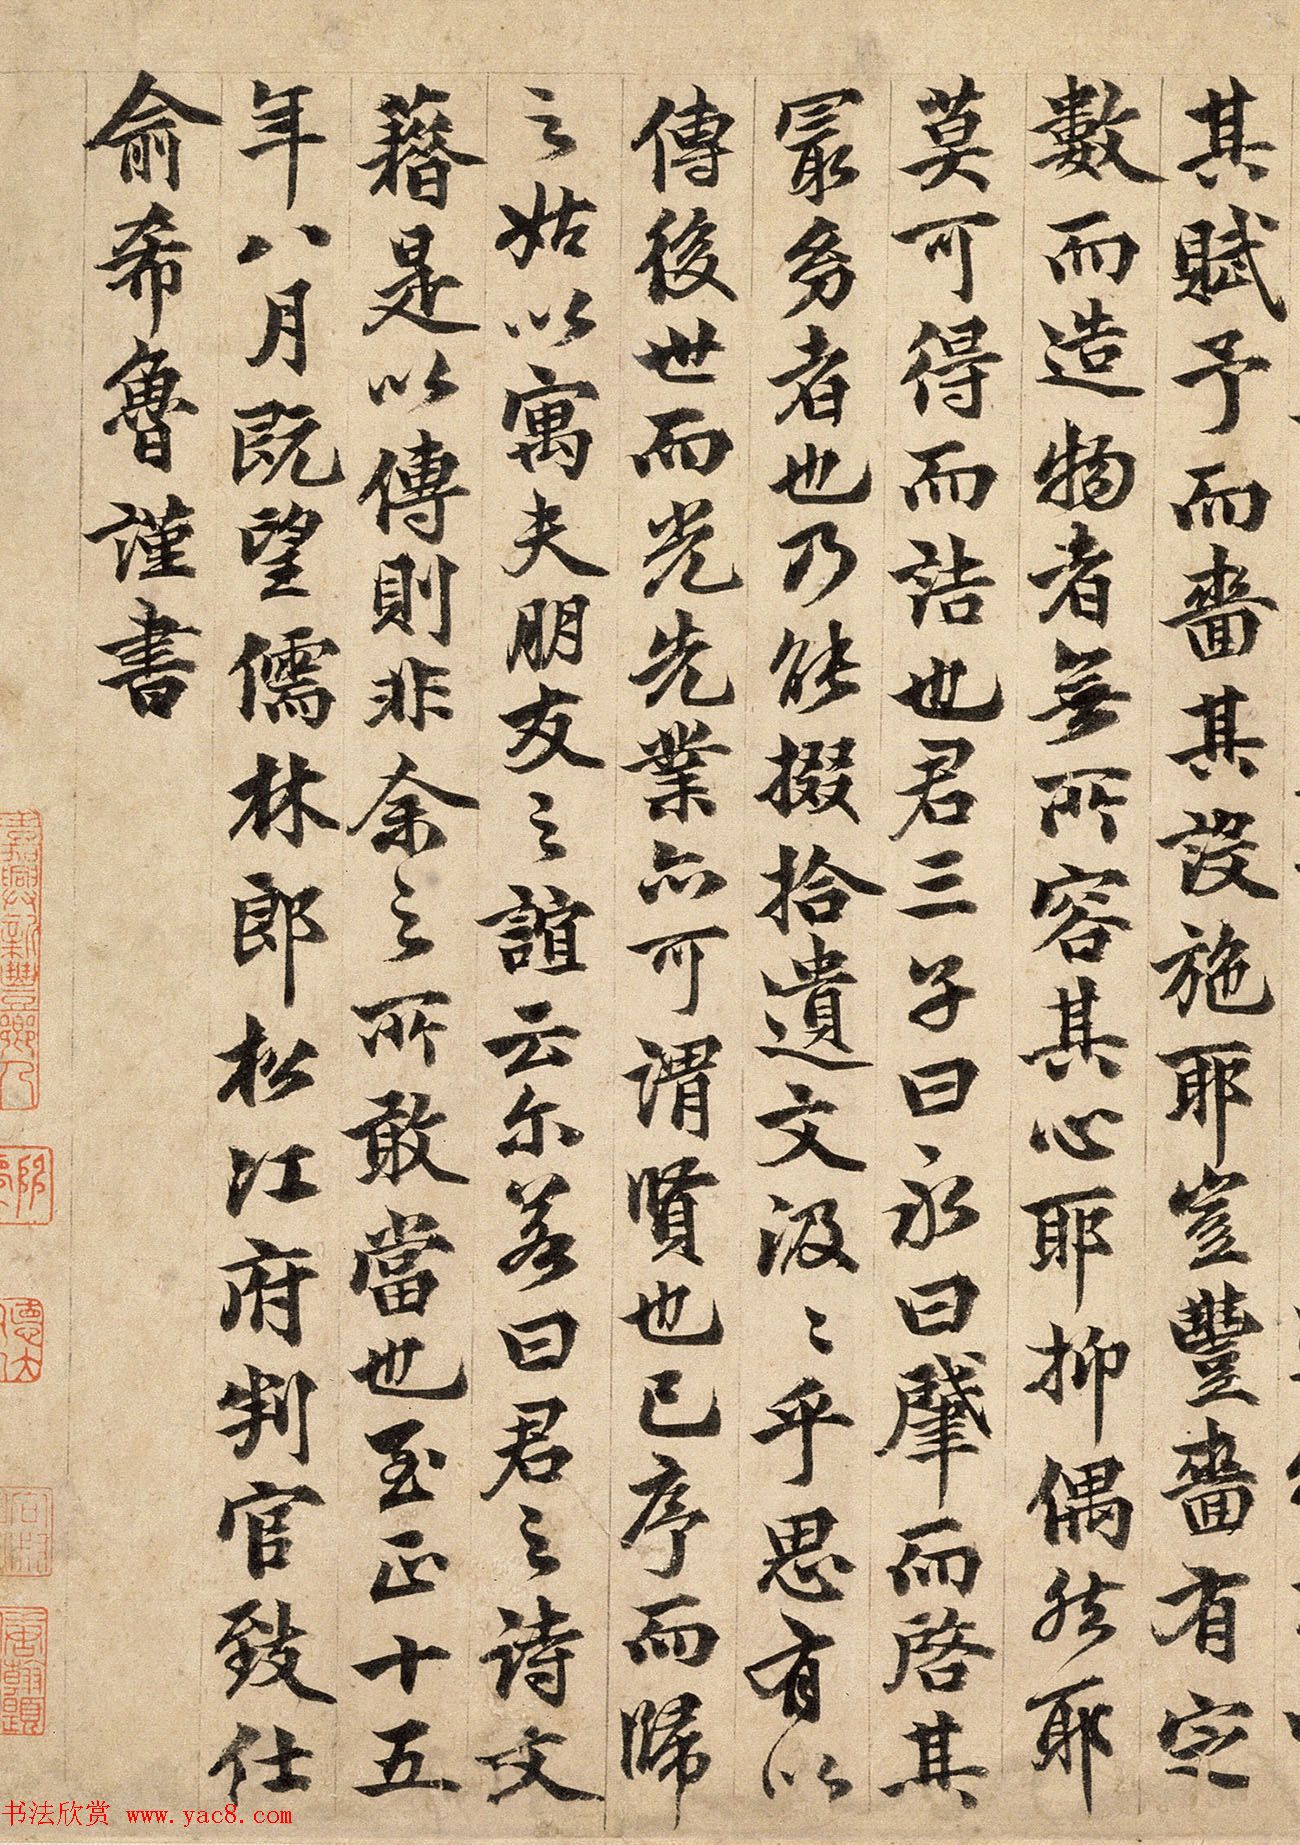 其賦予而嗇其設施耶豈豐嗇有定
數而造物者無所容其心耶抑偶然耶
莫可得而詰也君三子曰永曰肇而啓其
最彣者也乃能掇拾遺文汲〻乎思有以
傳後世而光先業亦可謂賢也已序而歸
之姑以寓夫朋友之誼云尔若曰君之詩文
藉是以傳則非余之所敢當也至正十五
年八月既望儒林郎松江府判官致仕
俞希魯謹書
书法欣赏 www.yac8.com